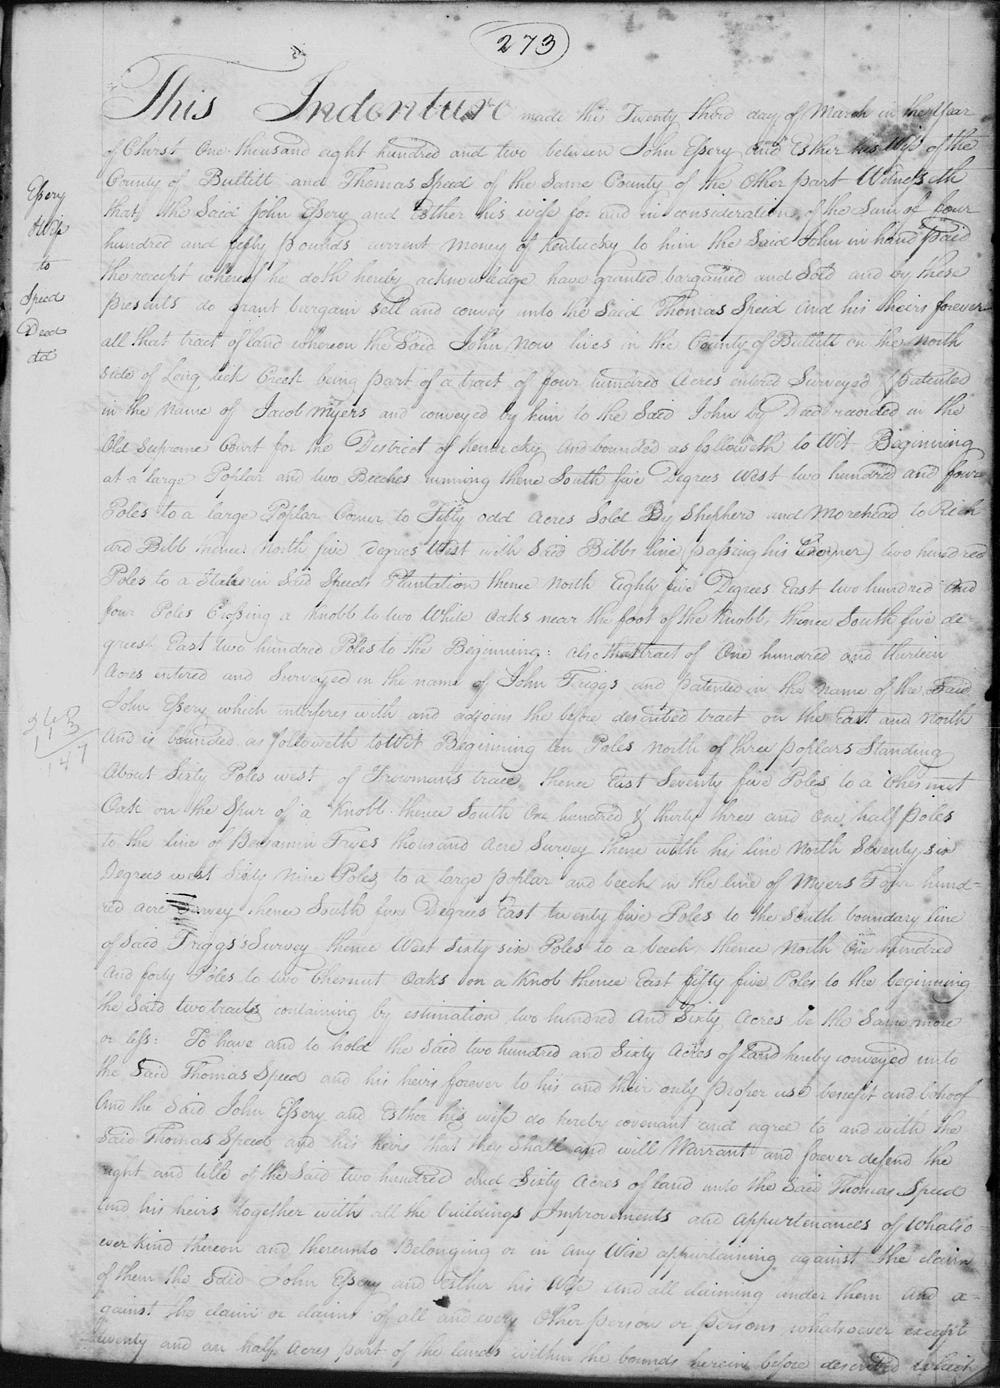 273
This Indenture made this Twenty third day of March in the Year
of Christ One thousand eight hundred and two between John Essery and Esther his Wife of the
County of Bullitt and Thomas Speed of the Same County of the Other part Witnesseth
that the Said John Essery and Esther his wife for and in consideration of the Sum of four
hundred and fifty pounds current money of Kentucky to him the Said John in hand paid
the receipt whereof he doth hereby acknowledge have granted bargained and Sold and by these
presents do grant bargain sell and convey unto the Said Thomas Speed and his heirs forever
all that tract of land whereon the Said John Now lives in the County of Bullitt on the North
side of Long lick Creek being part of a tract of four hundred Acres entered Surveyed & patented
in the Name of Jacob Myers and conveyed by him to the Said John by Deed recorded in the
Old Supreme Court for the District of Kentucky and bounded as followeth to Wit Beginning
at a large Poplar and two Beeches running thence South five Degrees West two hundred and four
Poles to a large Poplar Corner to Fifty odd Acres Sold By Shepherd and Morehead to Rich
ard Bibb thence North five Degrees West with Said Bibbs line (passing his Corner) two hundred
Poles to a Stake in Said Speeds Plantation thence North Eighty five Degrees East two hundred and
four Poles Crossing a Knobb to two White Oaks near the foot of the Knobb, thence South five de
grees East two hundred Poles to the Beginning: also that tract of One hundred and thirteen
Acres entered and Surveyed in the name of John Triggs and patented in the Name of the Said
John Essery which interferes with and adjoins the before described tract on the East and North
And is bounded as followeth to Wit Beginning ten Poles North of three poplars Standing
About Sixty Poles west of Froman's trace, thence East Seventy five Poles to a Chesnut
Oak on the Spur of a Knobb thence South One hundred & thirty three and one half poles
to the line of Benjamin Fryes thousand Acre Survey thence with his line North Seventy six
Degrees west Sixty Nine Poles to a large poplar and beech in the line of Myers Four hund=
red acre Survey thence South five Degrees East twenty five Poles to the South boundary line
of Said Triggs's Survey thence West Sixty six Poles to a beech thence North One hundred
and forty Poles to two Chesnut Oaks on a Knob thence East fifty five Poles to the beginning
the Said two tracts containing by estimation two hundred and Sixty Acres be the Same more
or less: To have and to hold the Said two hundred and Sixty Acres of land hereby conveyed unto
the Said Thomas Speed and his heirs forever to his and their only proper use benefit and behoof
And the Said John Essery and Esther his wife do hereby covenant and agree to and with the
Said Thomas Speed and his heirs that they Shall and will Warrant and forever defend the
right and title of the Said two hundred and Sixty Acres of land unto the Said Thomas Speed
and his heirs together with all the buildings Improvements and appurtenances of whatso
ever kind thereon and thereunto Belonging or in any Wise appurtaining against the claim
of them the Said John Essery and Esther his Wife and all claiming under them and a=
gainst the claim or claims of all and every Other person or persons whatsoever except
twenty and an half acres part of the lands within the bounds herein before described which
Essery
&Wife
to
Speed
Deed
dd